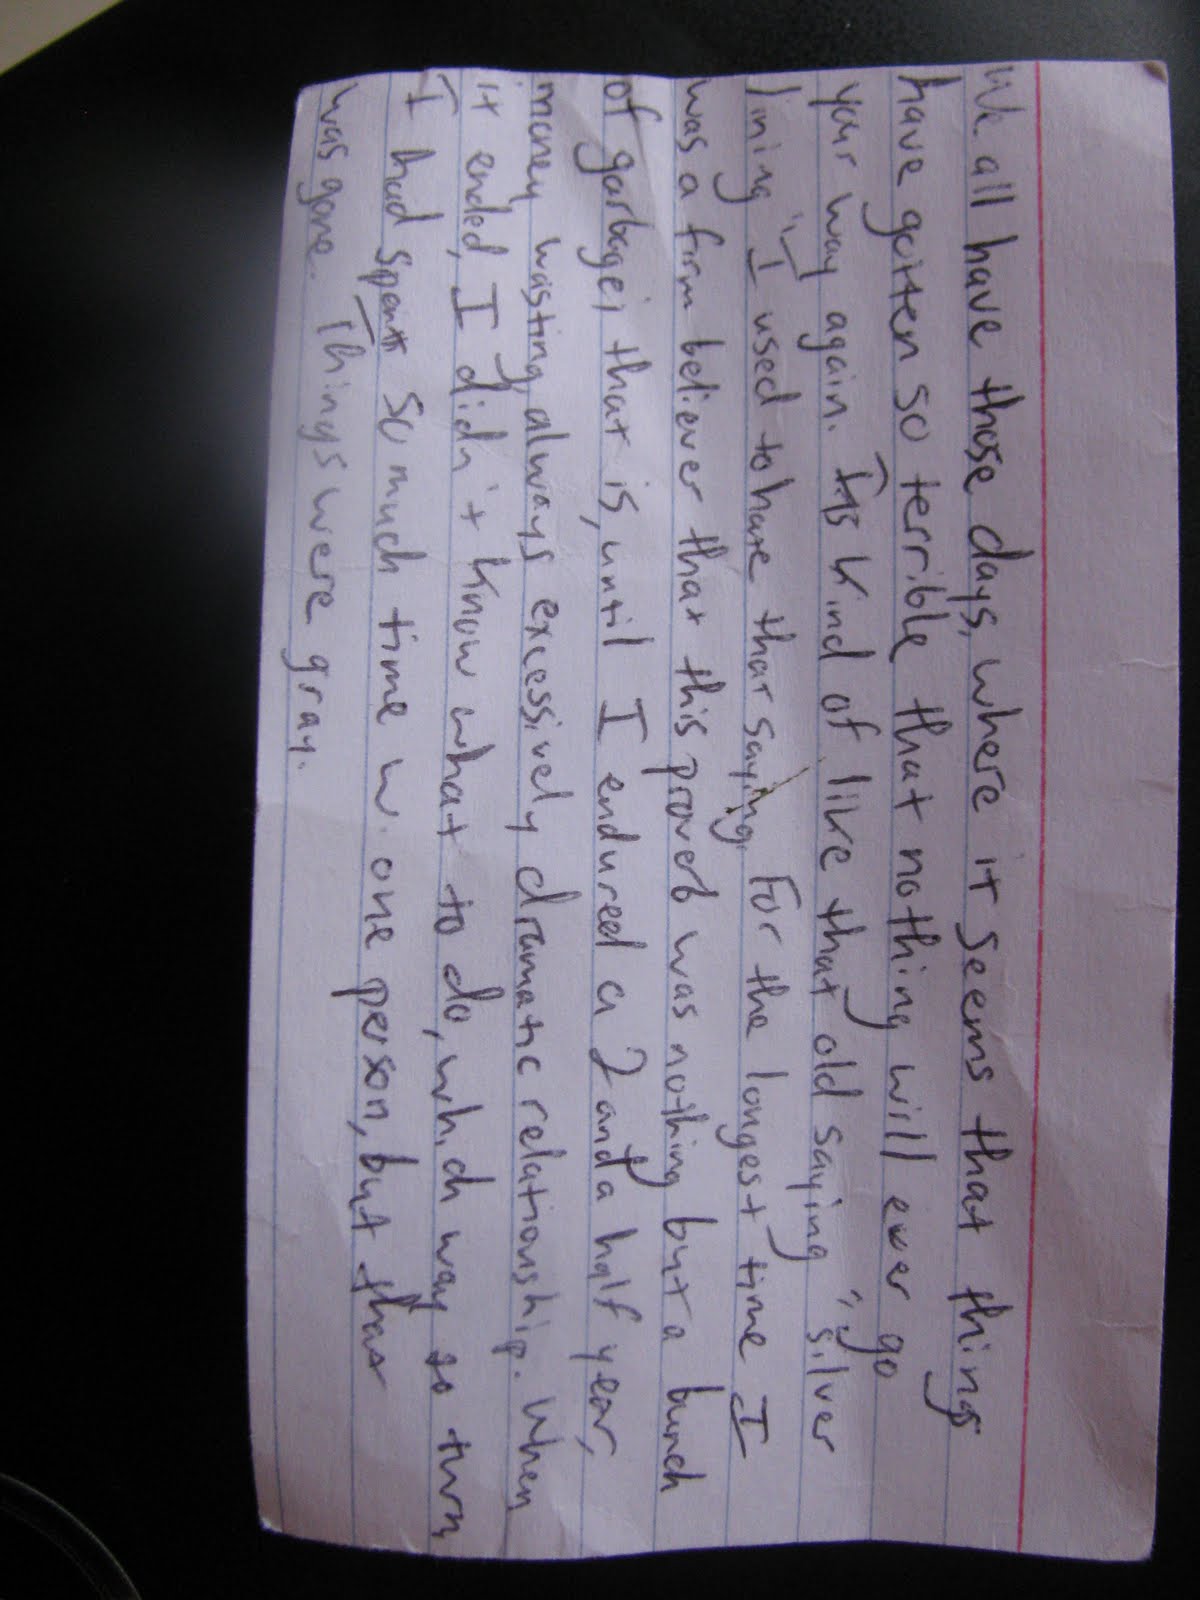 We all have those days, where it seems that things
have gotten so terrible that nothing will ever go
your way again. Its kind of like that old saying "silver
lining". I used to hate that saying. For the longest time I
was a firm believer that this proverb was nothing but a bunch
of garbage; that is, until I endured a 2 and a half year,
money wasting, always excessively dramatic relationship. When
it ended, I didn't know what to do, which way to turn,
I had spent so much time w. one person, but that
was gone. Things were gray.